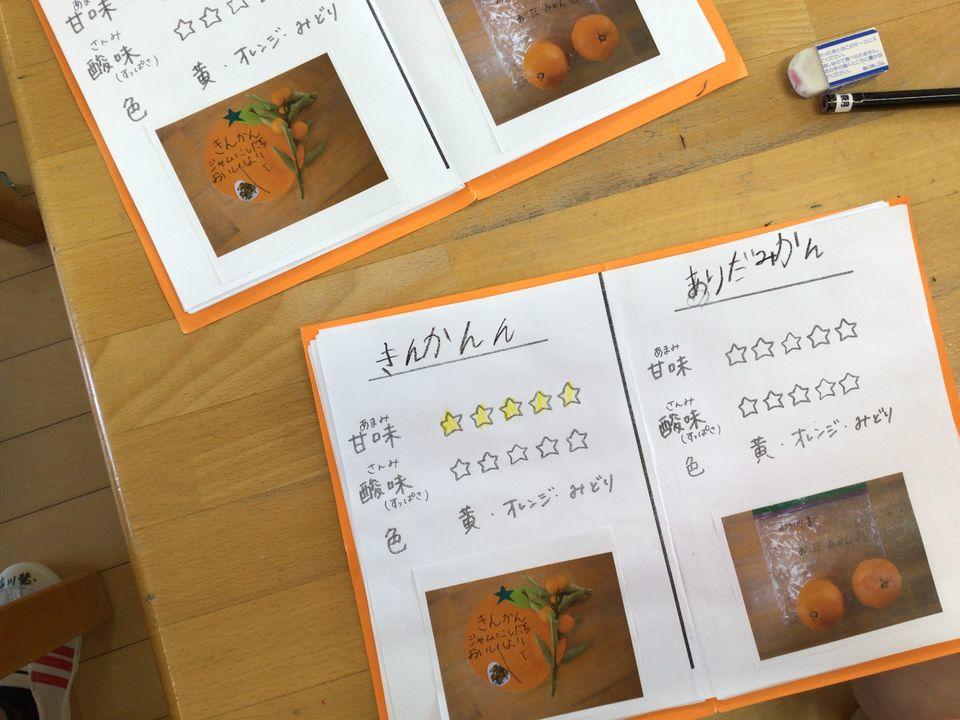 あまみ
甘味 ☆☆☆
さんみ
酸味
(すっぱさ)
色 黄・オレンジ・みどり
きんかん
ジャムにしたら
おいしいよ!
ありだみかん
きんかんん
あまみ
甘味 ★★★★★
さんみ
酸味 ☆☆☆☆☆
(すっぱさ)
色 黄・オレンジ・みどり
きんかん
ジャムにしたら
おいしいよ!
ありだみかん
あまみ
甘味 ☆☆☆☆☆
さんみ
酸味 ☆☆☆☆☆
(すっぱさ)
色 黄・オレンジ・みどり